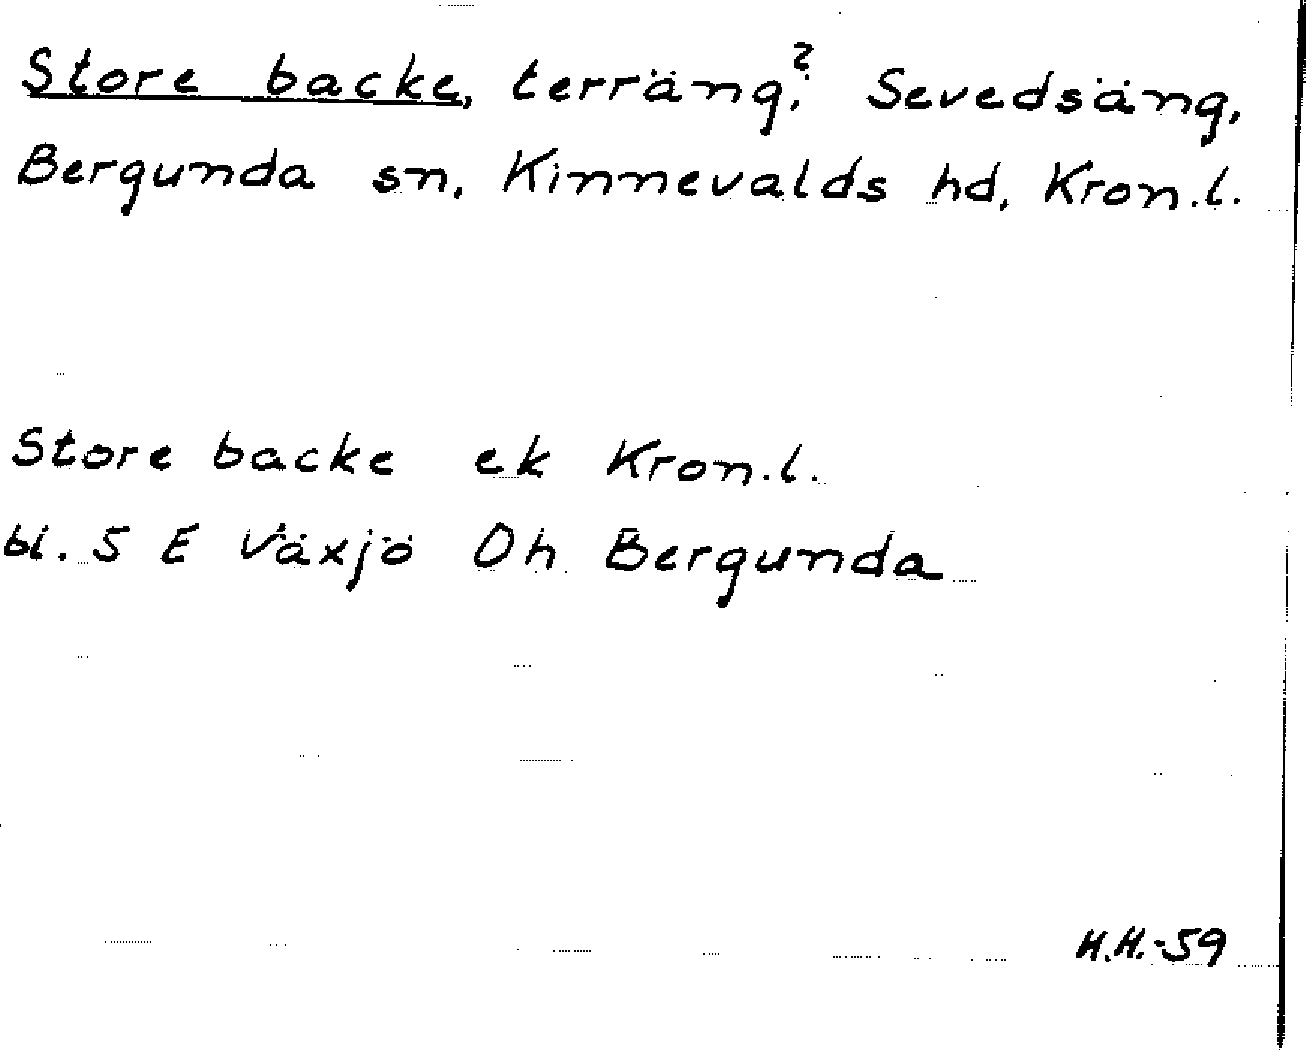 Store backe, terräng?, Sevedsäng,
Bergunda sn, Kinnevalds hd, Kron.l.
Store backe ek Kron.l.
bl. 5 E Växjö Oh Bergunda
H.H.-59